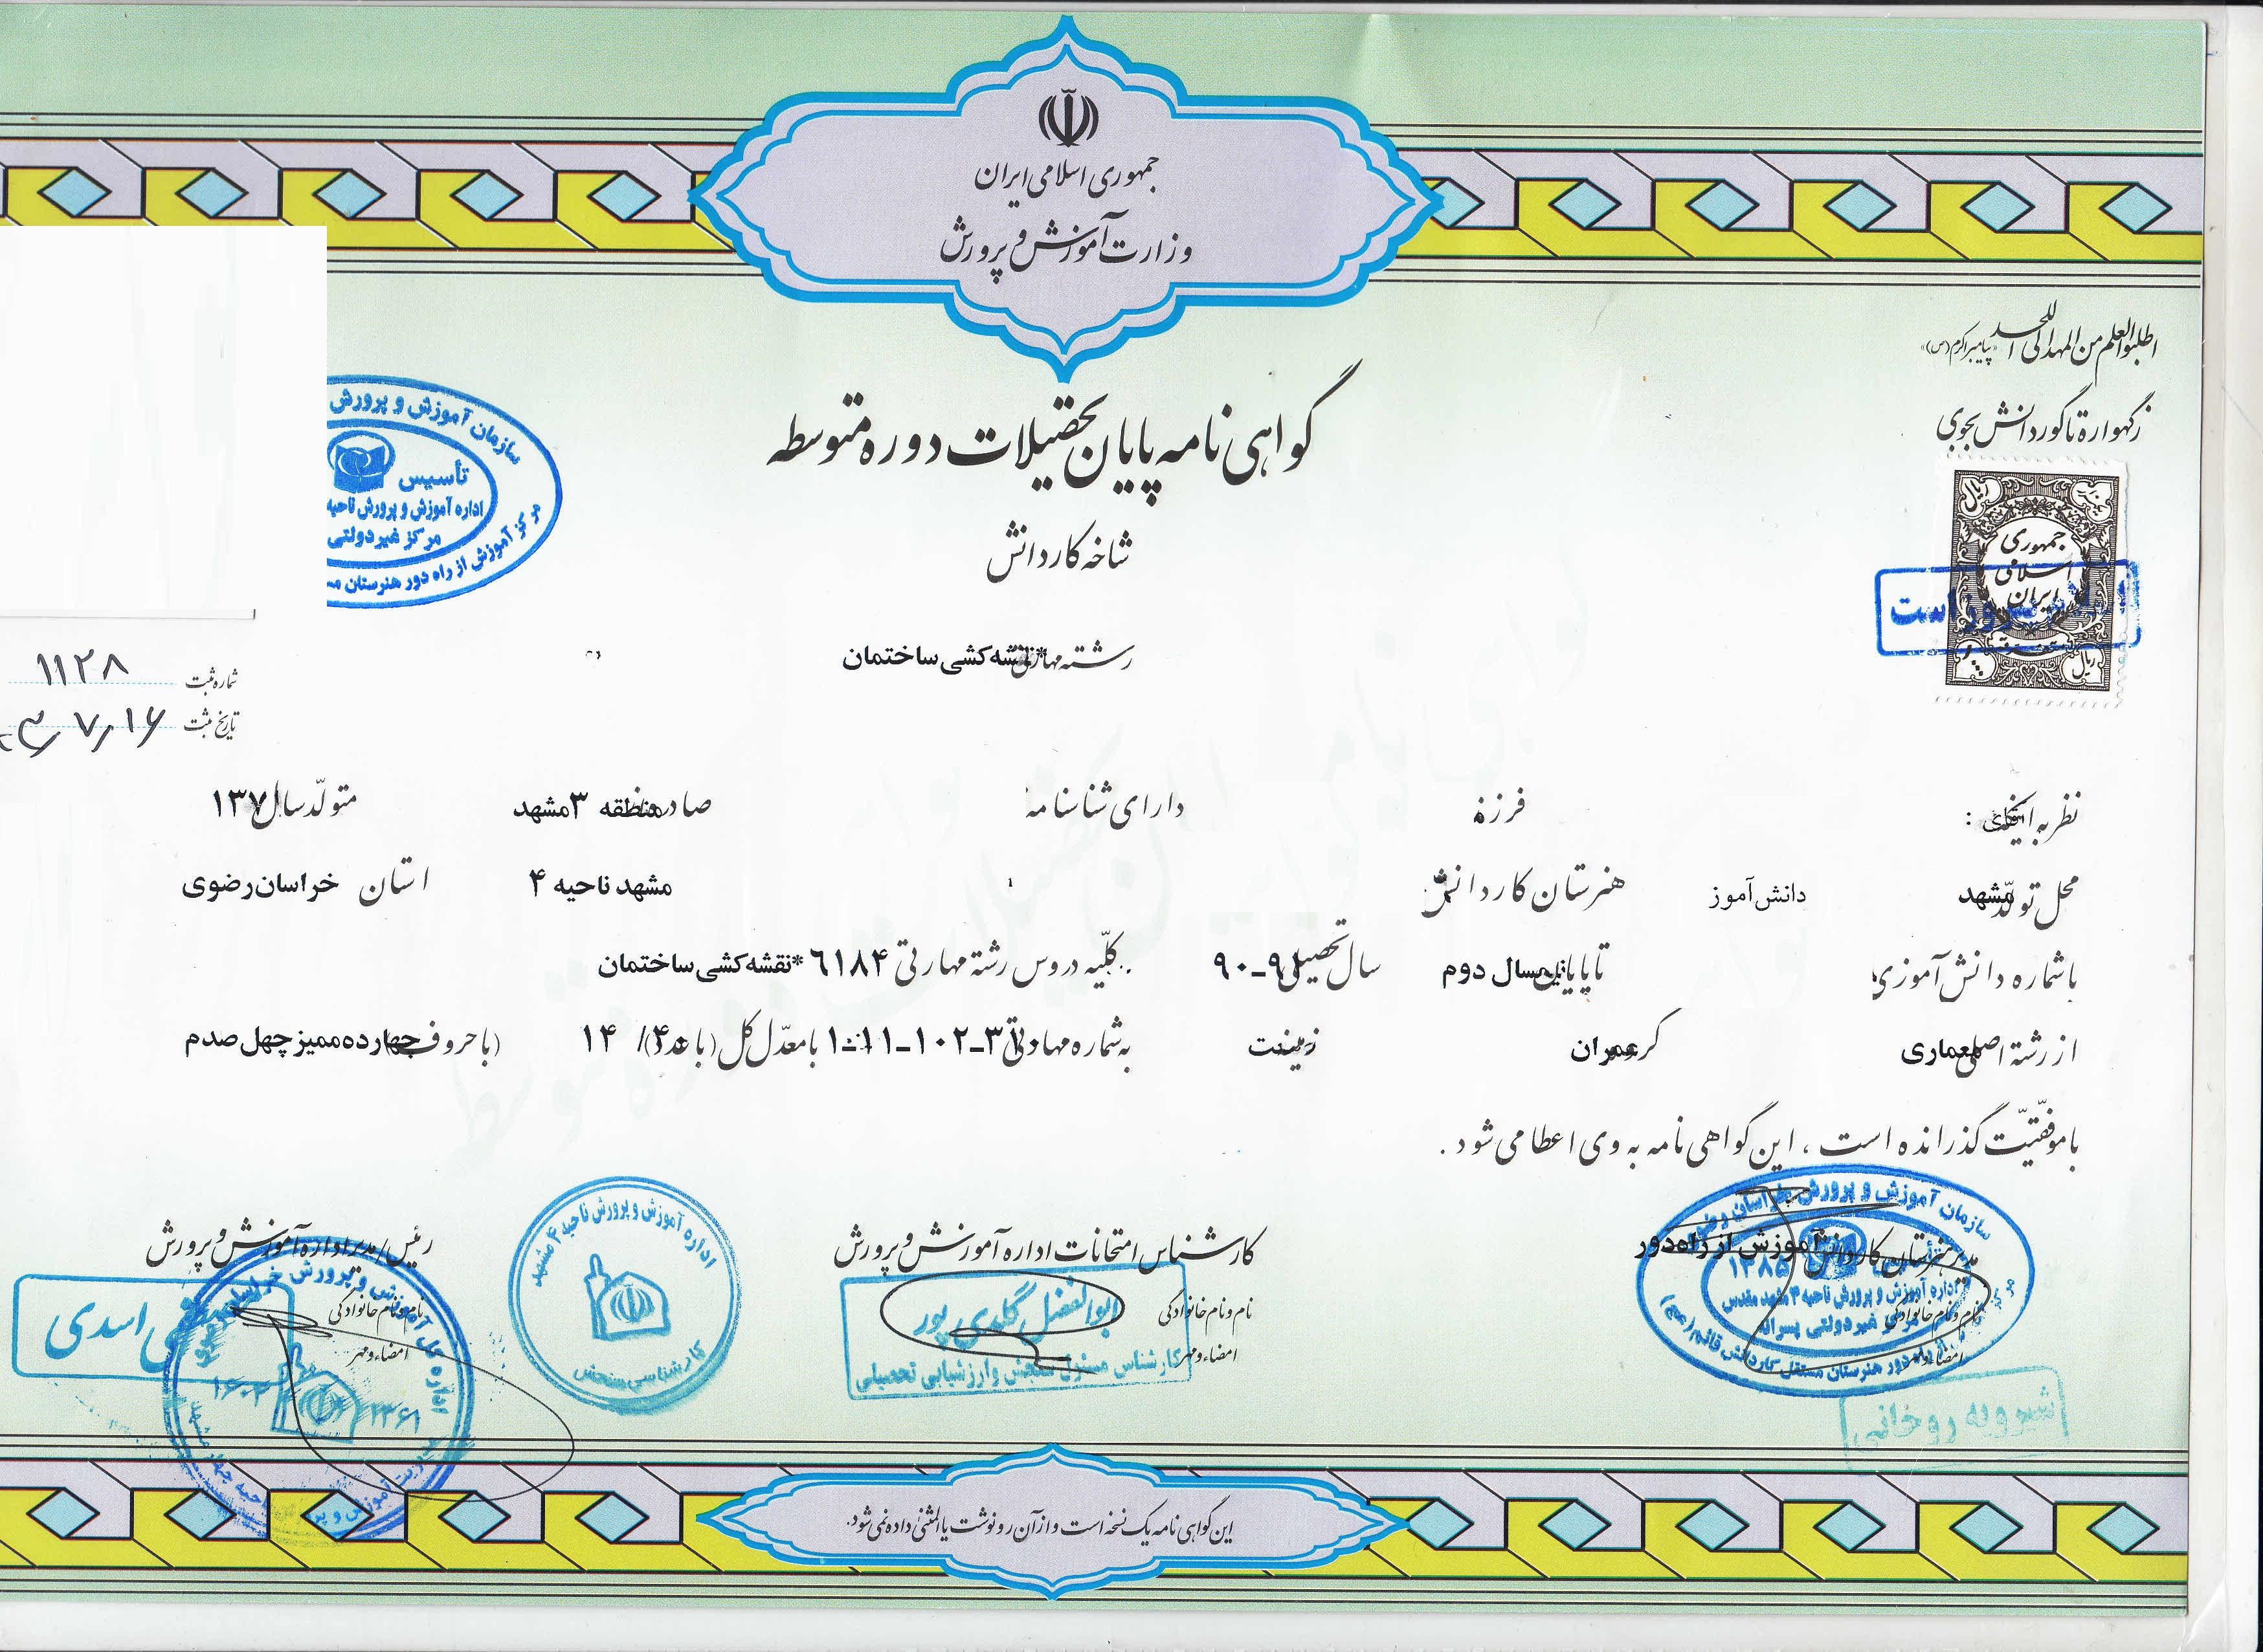 جمهوری اسلامی ایران
وزارت آموزش و پرورش
اطلبوا العلم من المهد الی اللحد «پیامبر اکرم (ص)»
ز گهواره تا گور دانش بجوی
گواهی نامه پایان تحصیلات دوره متوسطه
شاخه کاردانش
رشته مهارتی نقشه کشی ساختمان
سازمان آموزش و پرورش
تأسیس
اداره آموزش و پرورش ناحیه
مرکز غیر دولتی
مرکز آموزش از راه دور هنرستان
جمهوری
اسلامی
ایران
ریال
ریال
شماره ثبت ۱۱۲۸
تاریخ ثبت ۷/۱۶
نظر به اینکه : فرزند دارای شناسنامه صادره منطقه ۳مشهد متولّد سال ۱۳۷
محل تولّد مشهد دانش آموز هنرستان کاردانش مشهد ناحیه ۴ استان خراسان رضوی
با شماره دانش آموزی تا پایان سال دوم سال تحصیلی ۹۱-۹۰ کلّیه دروس رشته مهارتی ۶۱۸۴ *نقشه کشی ساختمان
از رشته اصلی معماری گروه عمران زمینه صنعت به شماره مهارتی ۳-۱۰۲-۱۱-۱ با معدّل کل (با عدد) ۱۴/۴۰ (با حروف) چهارده ممیز چهل صدم
با موفقیّت گذرانده است ، این گواهی نامه به وی اعطا می شود .
مدیر هنرستان کاردانش آموزش از راه دور
نام و نام خانوادگی
امضاء و مهر
سازمان آموزش و پرورش خراسان رضوی
۱۳۸۵
اداره آموزش و پرورش ناحیه ۴ مشهد مقدس
مرکز غیر دولتی پسرانه
راه دور هنرستان مستقل کاردانش قائم (عج)
روخانی
کارشناس امتحانات اداره آموزش و پرورش
نام و نام خانوادگی
امضاء و مهر
ابوالفضل گلدی پور
کارشناس مسئول سنجش و ارزشیابی تحصیلی
اداره آموزش و پرورش ناحیه ۴ مشهد
کارشناسی سنجش
رئیس/مدیر اداره آموزش و پرورش
نام و نام خانوادگی
امضاء و مهر
اسدی
اداره کل آموزش و پرورش خراسان
۱۳۶۱
این گواهی نامه یک نسخه است و از آن رونوشت یا المثنی داده نمی شود.